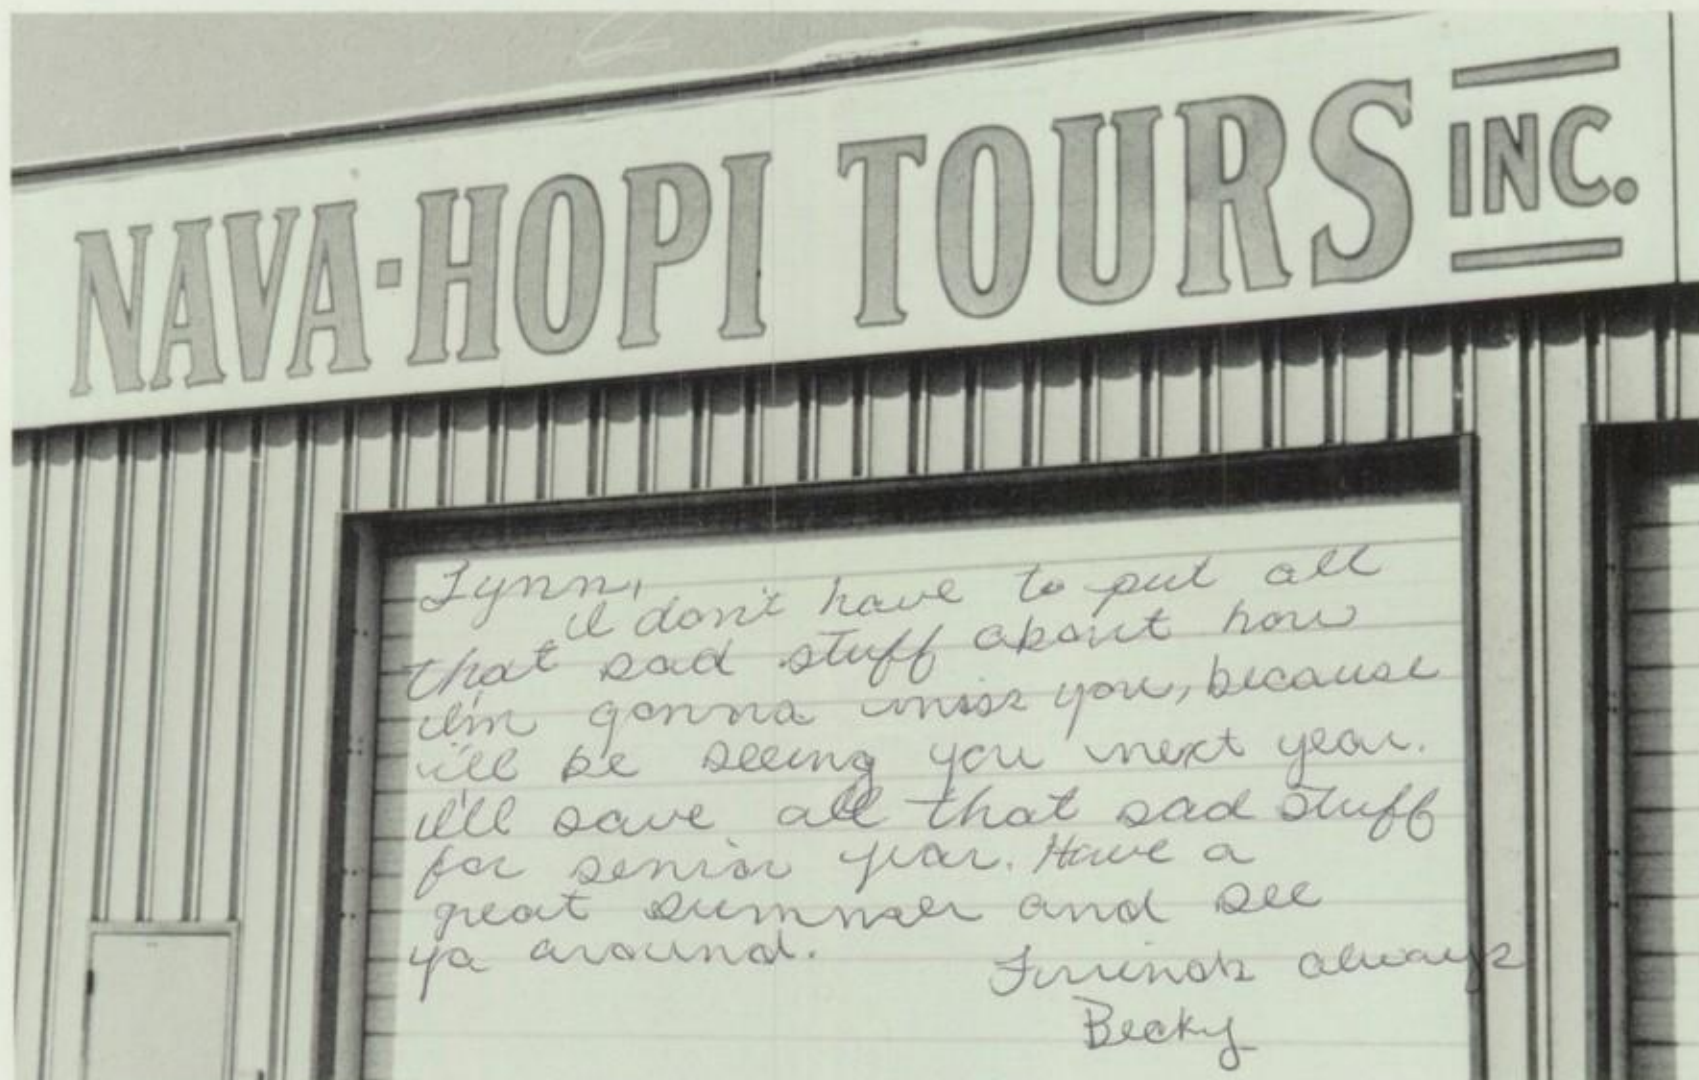 NAVA-HOPI TOURS INC.
Lynn,
I don't have to put all
that sad stuff about how
I'm gonna miss you, because
i'll be seeing you next year.
I'll save all that sad stuff
for senior year. Have a
great summer and see
ya around.
Friends always
Becky